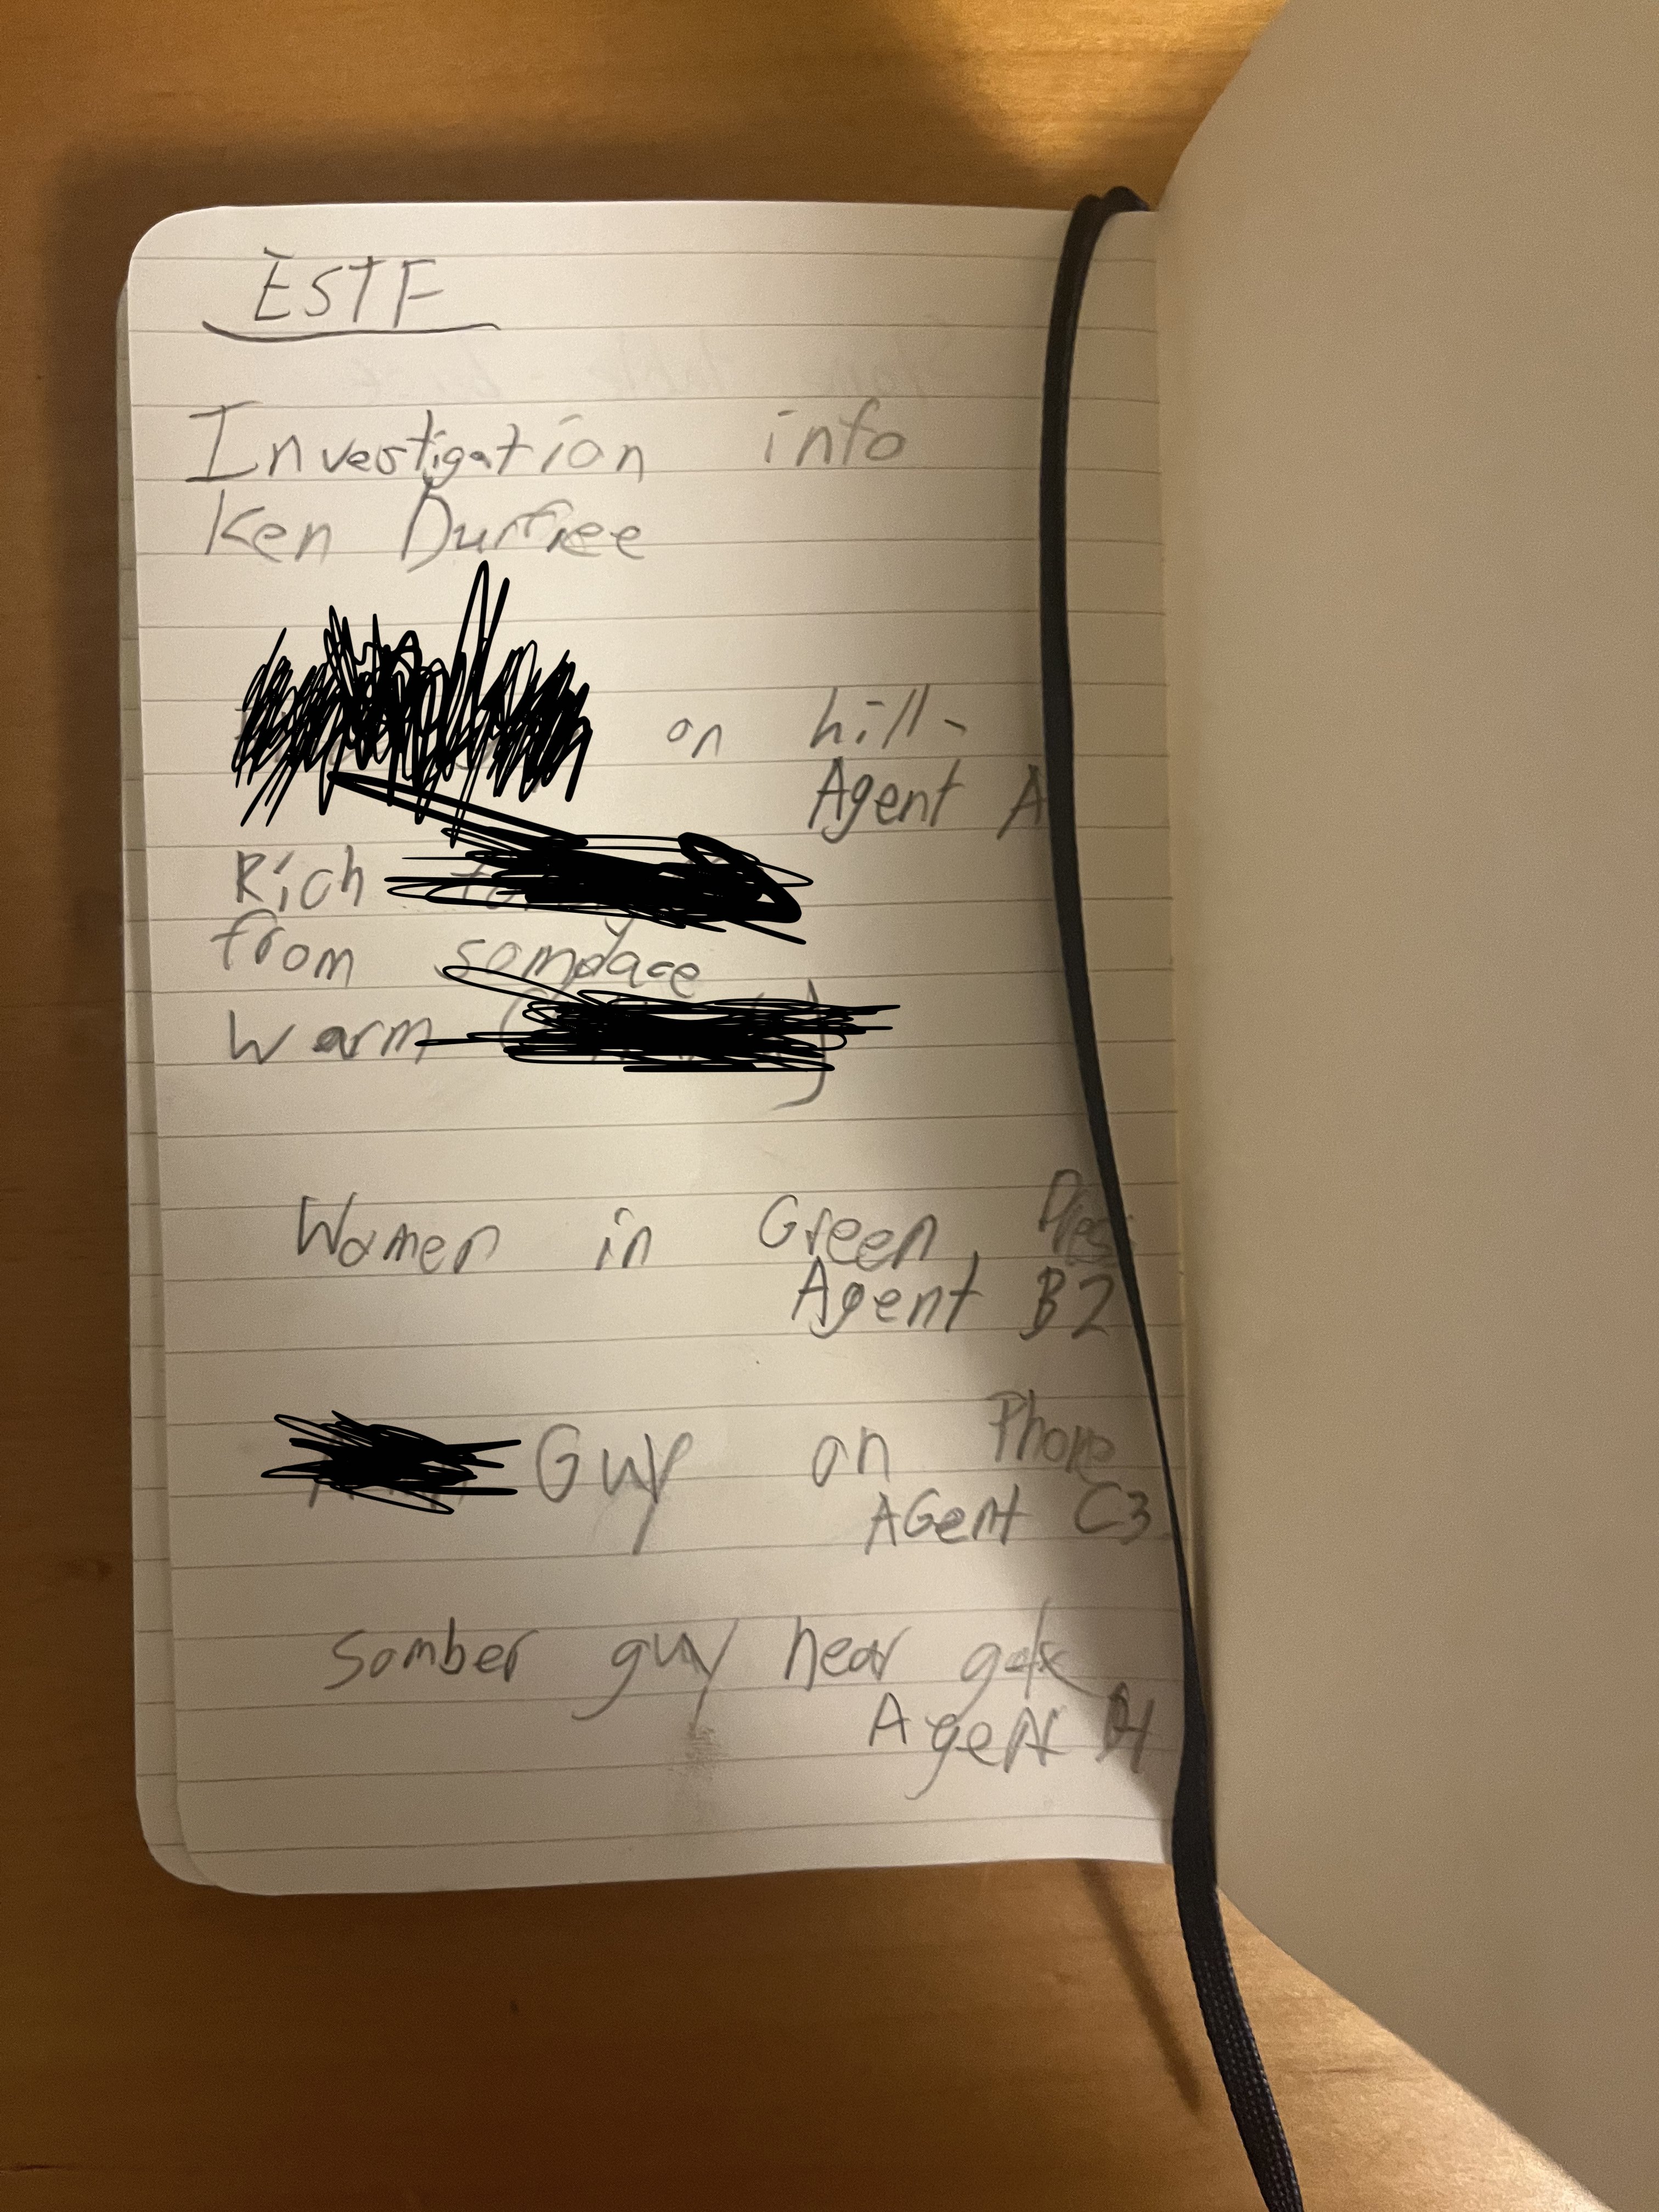 ESTF
Investigation info
Ken Durfree
on hill-
Agent A
Rich
from somplace
Warm
Women in Green Dress
Agent B2
Guy on Phone
AGent C3
Somber guy near gate
Agent